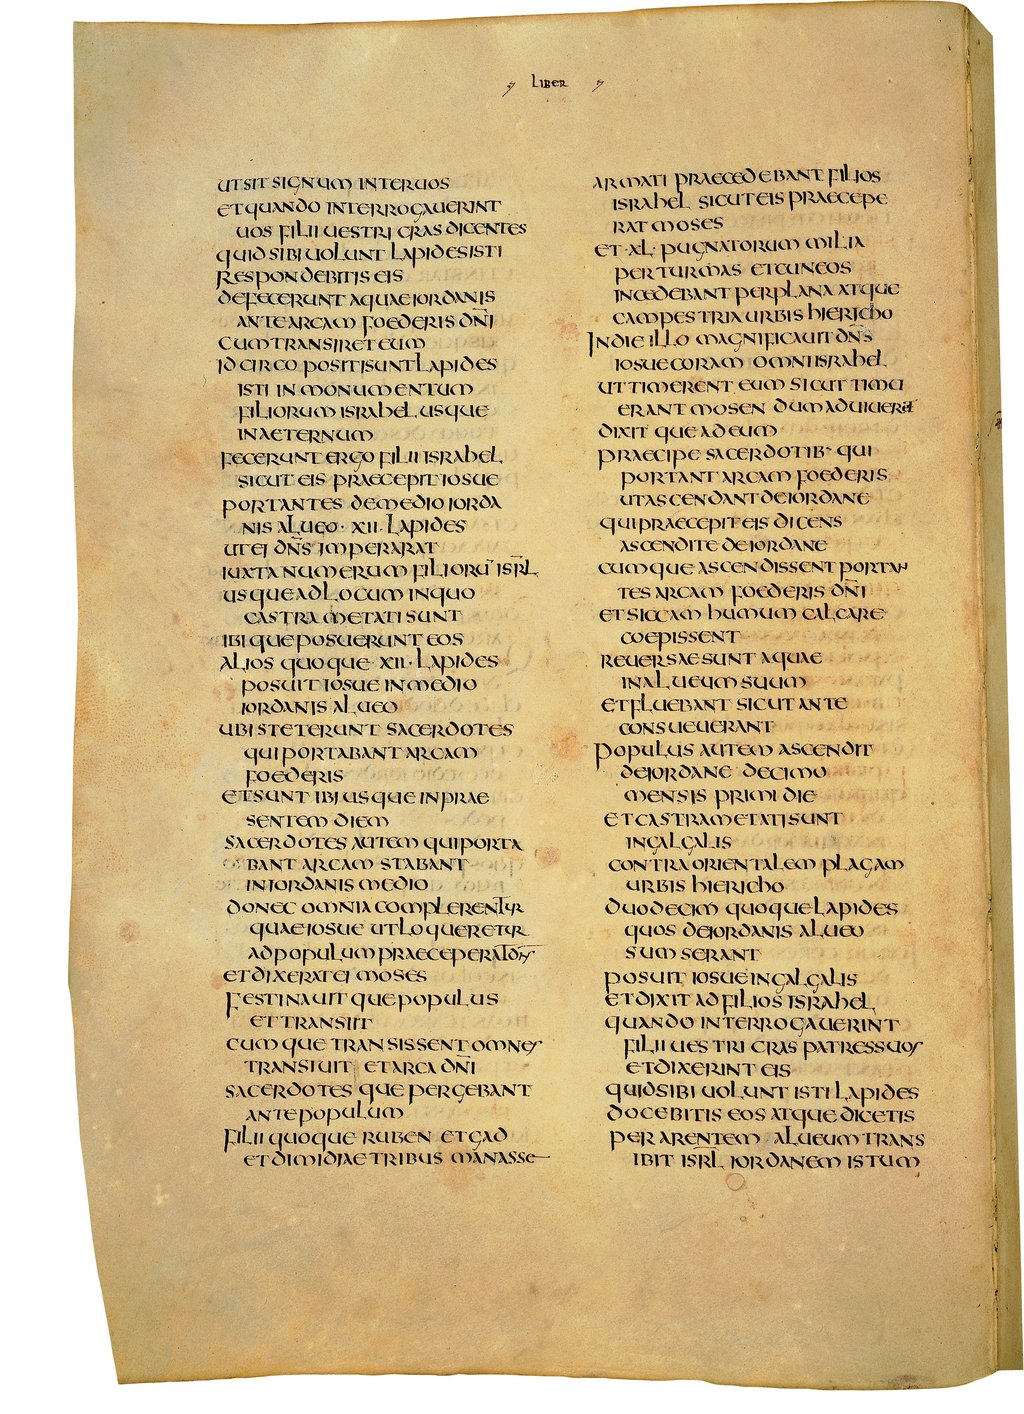 LIBER
UTSIT SIGNUM INTERUOS
ETQUANDO INTERROGAUERINT
UOS FILII UESTRI CRAS DICENTES
QUID SIBI UOLUNT LAPIDES ISTI
RESPONDEBITIS EIS
DEFECERUNT AQUAE IORDANIS
ANTE ARCAM FOEDERIS DN̄I
CUM TRANSIRET EUM
IDCIRCO POSITI SUNT LAPIDES
ISTI IN MONUMENTUM
FILIORUM ISRAHEL USQUE
IN AETERNUM
FECERUNT ERGO FILII ISRAHEL
SICUT EIS PRAECEPIT IOSUE
PORTANTES DE MEDIO IORDA
NIS ALUEO · XII · LAPIDES
UT EI DN̄S IMPERARAT
IUXTA NUMERUM FILIORŪ ISR̄L
USQUE AD LOCUM IN QUO
CASTRA METATI SUNT
IBIQUE POSUERUNT EOS
ALIOS QUOQUE · XII · LAPIDES
POSUIT IOSUE IN MEDIO
IORDANIS ALUEO
UBI STETERUNT SACERDOTES
QUI PORTABANT ARCAM
FOEDERIS
ET SUNT IBI USQUE IN PRAE
SENTEM DIEM
SACERDOTES AUTEM QUI PORTA
BANT ARCAM STABANT
IN IORDANIS MEDIO
DONEC OMNIA COMPLERENTUR
QUAE IOSUE UT LOQUERETUR
AD POPULUM PRAECEPERAT DN̄S
ET DIXERAT EI MOSES
FESTINAUITQUE POPULUS
ET TRANSIIT
CUMQUE TRANSISSENT OMNES
TRANSIUIT ET ARCA DN̄I
SACERDOTESQUE PERGEBANT
ANTE POPULUM
FILII QUOQUE RUBEN ET GAD
ET DIMIDIAE TRIBUS MANASSE
ARMATI PRAECEDEBANT FILIOS
ISRAHEL SICUT EIS PRAECEPE
RAT MOSES
ET · XL · PUGNATORUM MILIA
PER TURMAS ET CUNEOS
INCEDEBANT PER PLANA ATQUE
CAMPESTRIA URBIS HIERICHO
IN DIE ILLO MAGNIFICAUIT DN̄S
IOSUE CORAM OMNI ISRAHEL
UT TIMERENT EUM SICUT TIMU
ERANT MOSEN DUM ADUIUERET
DIXITQUE AD EUM
PRAECIPE SACERDOTIB· QUI
PORTANT ARCAM FOEDERIS
UT ASCENDANT DE IORDANE
QUI PRAECEPIT EIS DICENS
ASCENDITE DE IORDANE
CUMQUE ASCENDISSENT PORTAN
TES ARCAM FOEDERIS DN̄I
ET SICCAM HUMUM CALCARE
COEPISSENT
REUERSAE SUNT AQUAE
IN ALUEUM SUUM
ET FLUEBANT SICUT ANTE
CONSUEUERANT
POPULUS AUTEM ASCENDIT
DE IORDANE DECIMO
MENSIS PRIMI DIE
ET CASTRA METATI SUNT
IN GALGALIS
CONTRA ORIENTALEM PLAGAM
URBIS HIERICHO
DUODECIM QUOQUE LAPIDES
QUOS DE IORDANIS ALUEO
SUMSERANT
POSUIT IOSUE IN GALGALIS
ET DIXIT AD FILIOS ISRAHEL
QUANDO INTERROGAUERINT
FILII UESTRI CRAS PATRES SUOS
ET DIXERINT EIS
QUID SIBI UOLUNT ISTI LAPIDES
DOCEBITIS EOS ATQUE DICETIS
PER ARENTEM ALUEUM TRANS
IBIT ISR̄L IORDANEM ISTUM